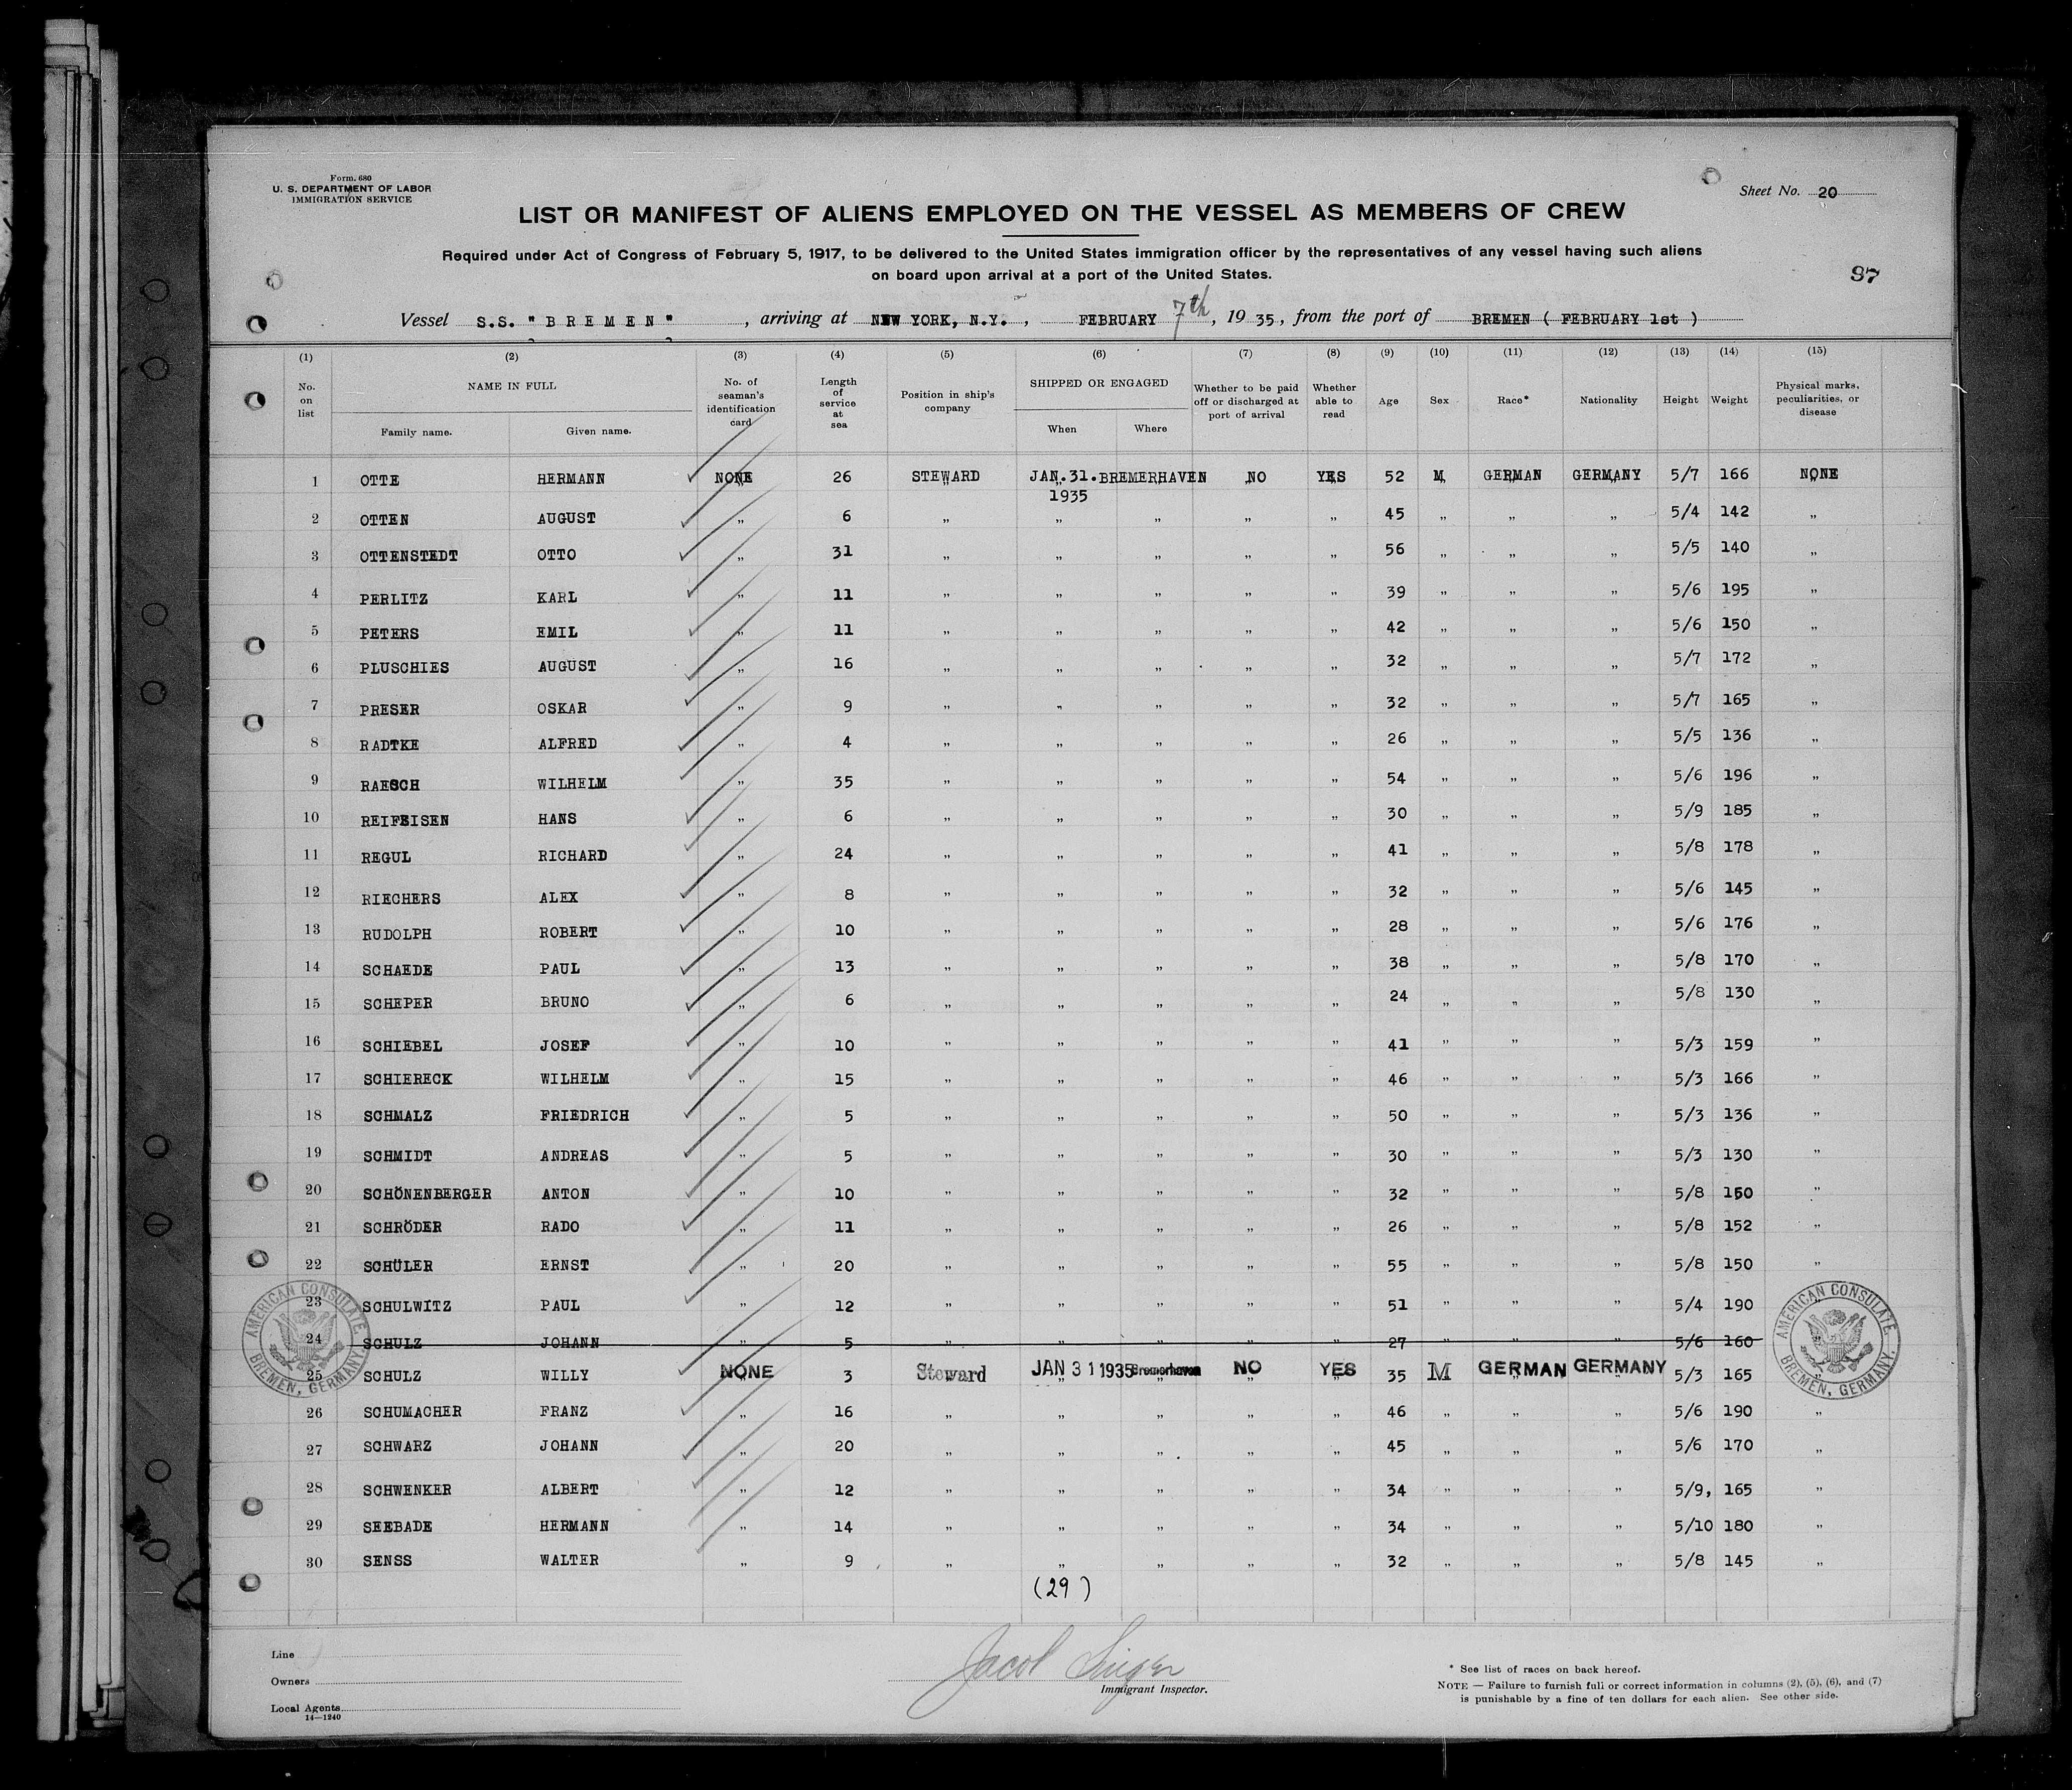 Form. 680
U. S. DEPARTMENT OF LABOR
IMMIGRATION SERVICE
Sheet No. 20
LIST OR MANIFEST OF ALIENS EMPLOYED ON THE VESSEL AS MEMBERS OF CREW
Required under Act of Congress of February 5, 1917, to be delivered to the United States immigration officer by the representatives of any vessel having such aliens
on board upon arrival at a port of the United States.
87
Vessel S.S. "BREMEN", arriving at NEW YORK, N.Y., FEBRUARY 7th, 1935, from the port of BREMEN ( FEBRUARY 1st )
(1) (2) (3) (4) (5) (6) (7) (8) (9) (10) (11) (12) (13) (14) (15)
No. on list NAME IN FULL Family name. Given name. No. of seaman's identification card Length of service at sea Position in ship's company SHIPPED OR ENGAGED When Where Whether to be paid off or discharged at port of arrival Whether able to read Age Sex Race* Nationality Height Weight Physical marks, peculiarities, or disease
1 OTTE HERMANN NONE 26 STEWARD JAN.31. 1935 BREMERHAVEN NO YES 52 M GERMAN GERMANY 5/7 166 NONE
2 OTTEN AUGUST " 6 " " " " " 45 " " " 5/4 142 "
3 OTTENSTEDT OTTO " 31 " " " " " 56 " " " 5/5 140 "
4 PERLITZ KARL " 11 " " " " " 39 " " " 5/6 195 "
5 PETERS EMIL " 11 " " " " " 42 " " " 5/6 150 "
6 PLUSCHIES AUGUST " 16 " " " " " 32 " " " 5/7 172 "
7 PRESER OSKAR " 9 " " " " " 32 " " " 5/7 165 "
8 RADTKE ALFRED " 4 " " " " " 26 " " " 5/5 136 "
9 RAESCH WILHELM " 35 " " " " " 54 " " " 5/6 196 "
10 REIFEISEN HANS " 6 " " " " " 30 " " " 5/9 185 "
11 REGUL RICHARD " 24 " " " " " 41 " " " 5/8 178 "
12 RIECHERS ALEX " 8 " " " " " 32 " " " 5/6 145 "
13 RUDOLPH ROBERT " 10 " " " " " 28 " " " 5/6 176 "
14 SCHAEDE PAUL " 13 " " " " " 38 " " " 5/8 170 "
15 SCHEPER BRUNO " 6 " " " " " 24 " " " 5/8 130 "
16 SCHIEBEL JOSEF " 10 " " " " " 41 " " " 5/3 159 "
17 SCHIERECK WILHELM " 15 " " " " " 46 " " " 5/3 166 "
18 SCHMALZ FRIEDRICH " 5 " " " " " 50 " " " 5/3 136 "
19 SCHMIDT ANDREAS " 5 " " " " " 30 " " " 5/3 130 "
20 SCHÖNENBERGER ANTON " 10 " " " " " 32 " " " 5/8 150 "
21 SCHRÖDER RADO " 11 " " " " " 26 " " " 5/8 152 "
22 SCHÜLER ERNST " 20 " " " " " 55 " " " 5/8 150 "
23 SCHULWITZ PAUL " 12 " " " " " 51 " " " 5/4 190 "
24 SCHULZ JOHANN " 5 " " " " " 27 " " " 5/6 160
25 SCHULZ WILLY NONE 3 Steward JAN 31 1935 Bremerhaven NO YES 35 M GERMAN GERMANY 5/3 165 "
26 SCHUMACHER FRANZ " 16 " " " " " 46 " " " 5/6 190 "
27 SCHWARZ JOHANN " 20 " " " " " 45 " " " 5/6 170 "
28 SCHWENKER ALBERT " 12 " " " " " 34 " " " 5/9, 165 "
29 SEEBADE HERMANN " 14 " " " " " 34 " " " 5/10 180 "
30 SENSS WALTER " 9 " " " " " 32 " " " 5/8 145 "
AMERICAN CONSULATE BREMEN, GERMANY.
AMERICAN CONSULATE BREMEN, GERMANY.
(29)
Line
Owners
Local Agents
14—1240
Jacob Singer
Immigrant Inspector.
* See list of races on back hereof.
NOTE — Failure to furnish full or correct information in columns (2), (5), (6), and (7)
is punishable by a fine of ten dollars for each alien. See other side.